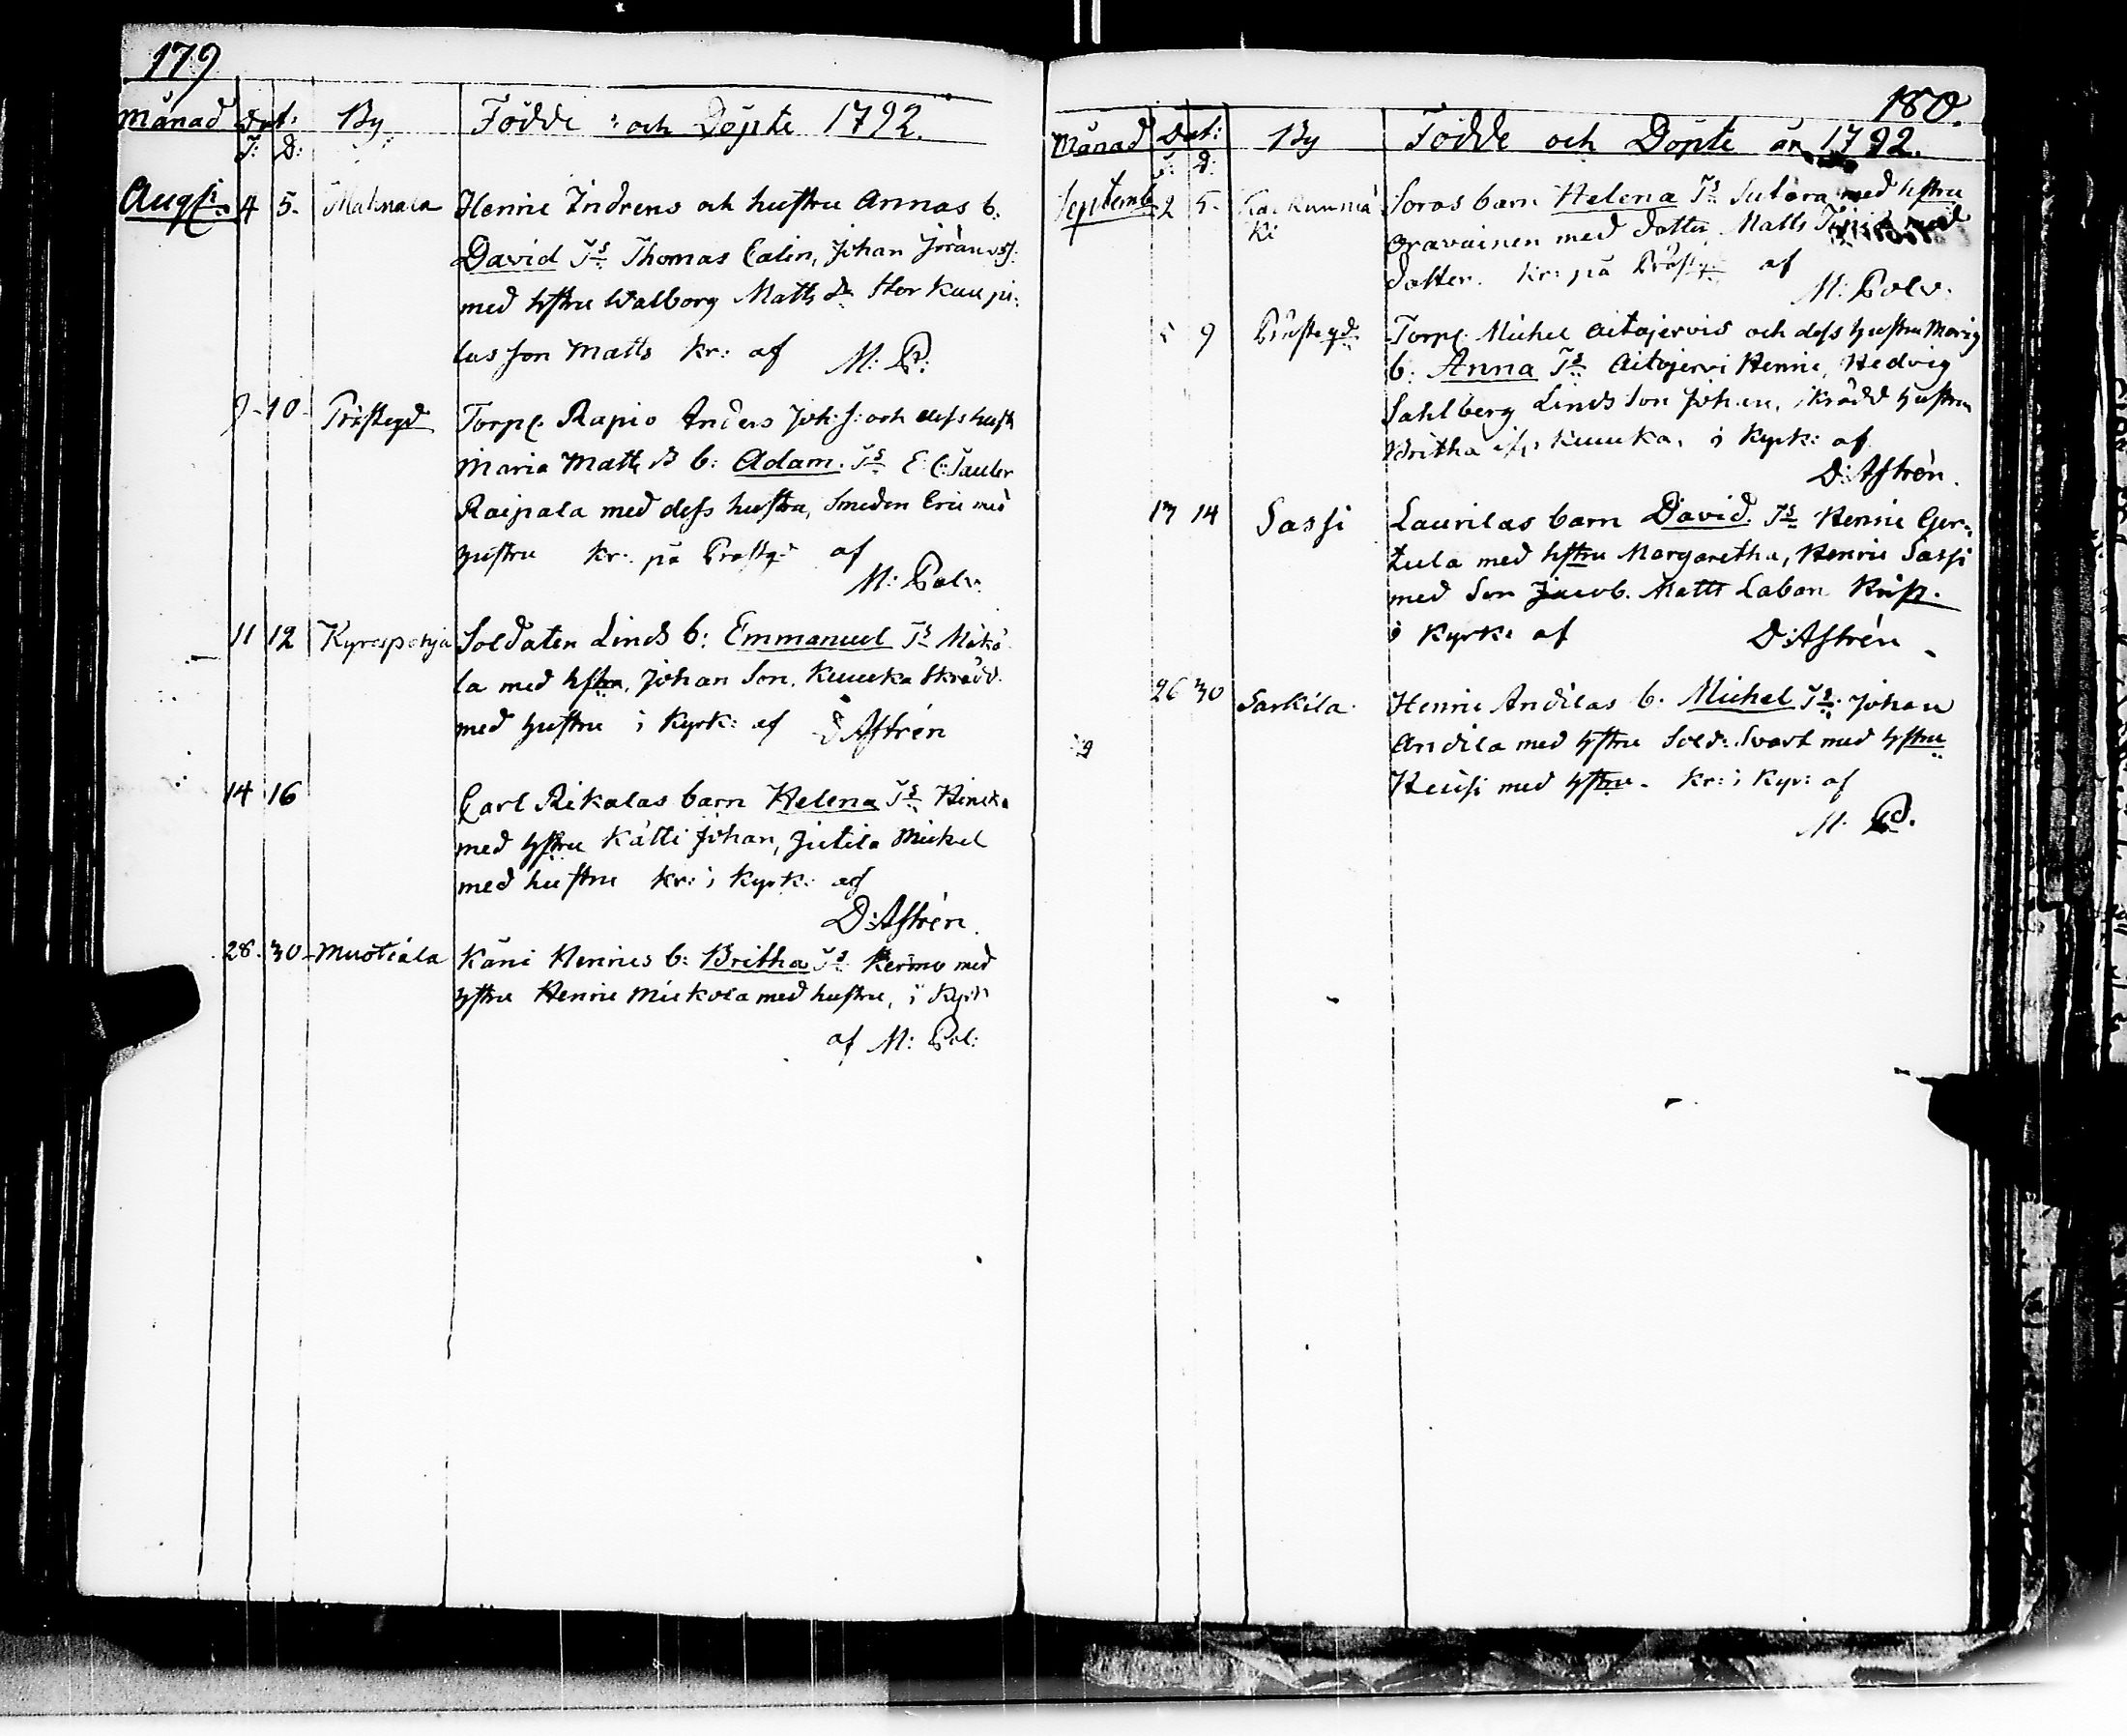 179
Månad Dat: By Födde och Döpte 1792.
F: D:
Augsti 4 5. Mahnala Henric Indrens och hustru Annas b:
David Ts Thomas Calin, Johan Jörans S.
med hstru Walborg Matts dr Stor Kaupi-
las son Matts kr: af M: P:
9 10 Prästegd Torp. Rapio Anders Joh: S: och dess hust
Maria Matts D b: Adam. Ts E: C: Tauler
Raipala med dess hustru, Smeden Eric med
hustru kr: på Prästg: af
M: Polv:
11 12 Kyrospohja Soldaten Linds b: Emmanuel Ts Mikko
la med hstru, Johan Son, Kuuska Skrädd.
med hustru i Kyrk: af D Astrén
14 16 Carl Rikalas barn Helena Ts Hincka
med hstru Kätti Johan, Jutila Michel
med hustru kr: i Kyrk: af
D: Astrén.
28. 30 Muotiala Käni Henrics b: Britha Ts Kermo med
hstru Henric Mickola med hustru, i Kyrk
af M: Pol:
180.
Månad Dat: By Födde och Döpte år 1792.
F: D:
Septemb 2 5. Soras barn Helena Ts Sutara med hstru
ki Oravainen med dotter Matts med
dotter. kr: på Prästg: af
M: Polv.
5 9 Prästegd Torp. Michel Aitojervis och dess hustru Marig
b: Anna Ts Aitojervi Henric, Hedvig
Sahlberg Linds Son Johan, skrädd hustru
Britha Kuuska, i Kyrk: af
D: Astrén.
13 14 Sassi Laurilas barn David. Ts Henric Ger-
tula med hstru Margaretha, Henric Sassi
med Son Jacob. Matts Laban
i Kyrk: af D: Astrén
26 30 Sarkila Henric Andilas b. Michel Ts. Johan
Andila med hstru Sold: Svart med hstru
Heiisi med hstru. kr: i Kyr: af
M. Pd.